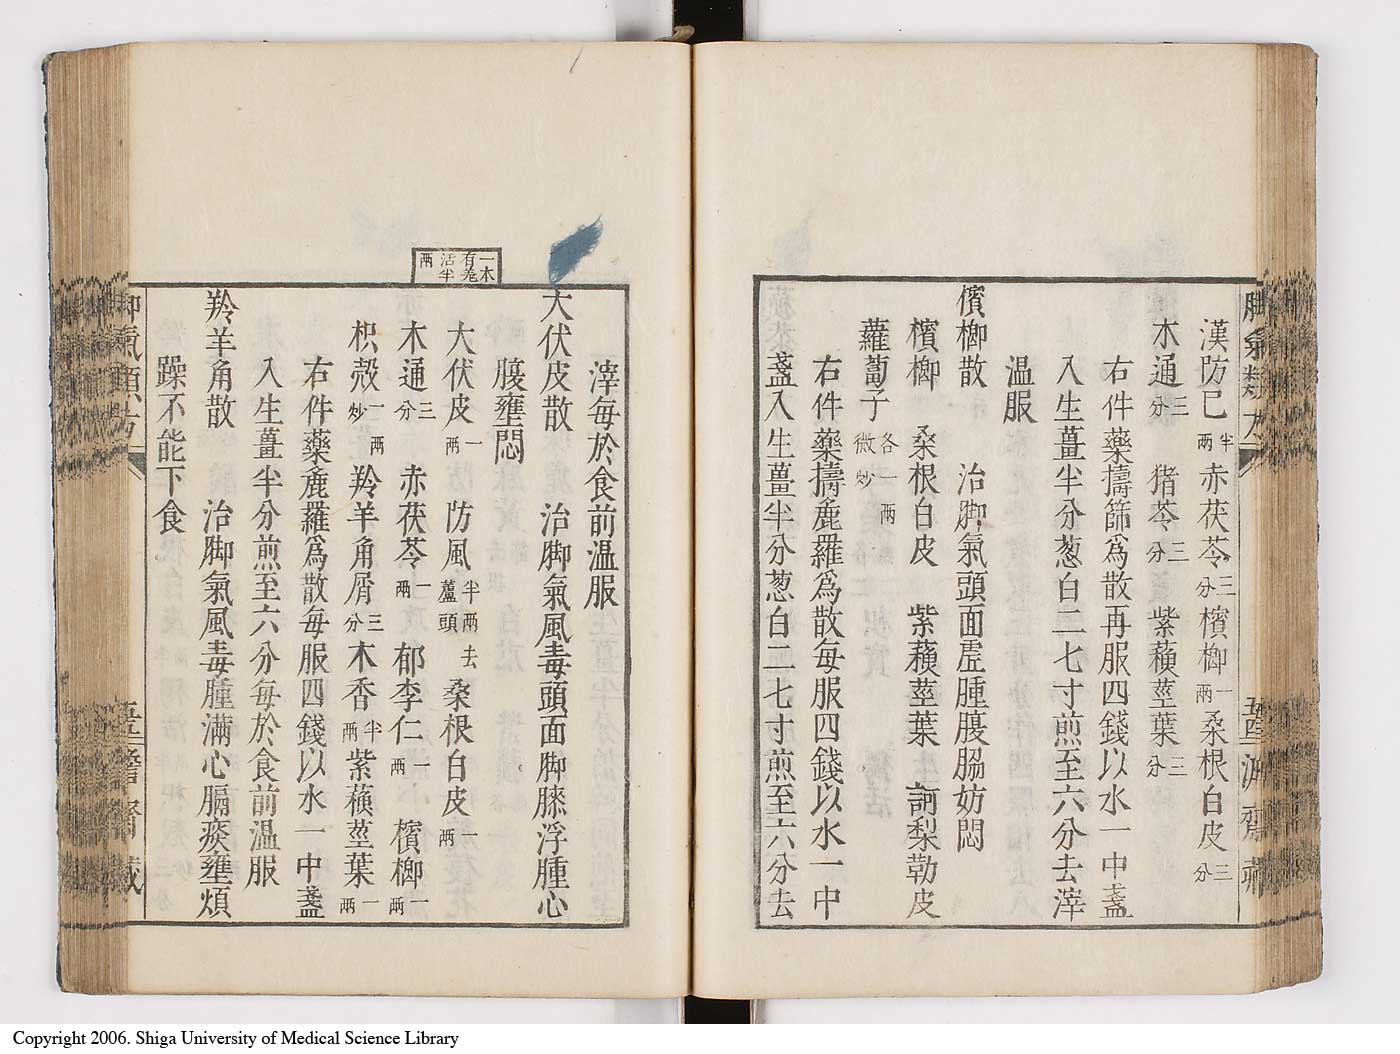 漢防已半兩赤茯苓三分檳榔一兩桑根白皮三分
木通三分 猪苓三分 紫蘓莖葉三分
右件藥擣篩爲散再服四錢以水一中盞
入生薑半分葱白二七寸煎至六分去滓
温服
檳榔散 治脚氣頭面虛腫腹脇妨悶
檳榔 桑根白皮 紫蘓莖葉 訶梨勒皮
蘿蔔子各一兩微炒
右件藥擣麁羅爲散每服四錢以水一中
盞入生薑半分葱白二七寸煎至六分去
滓每於食前温服
大伏皮散 治脚氣風毒頭面脚膝浮腫心
腹壅悶
大伏皮一兩 防風半兩去蘆頭 桑根白皮一兩
一本有羌活半兩
木通三分 赤茯苓一兩 郁李仁一兩 檳榔一兩
枳殼一兩炒 羚羊角屑三分 木香半兩 紫蘓莖葉一兩
右件藥麁羅爲散每服四錢以水一中盞
入生薑半分煎至六分每於食前温服
羚羊角散 治脚氣風毒腫滿心膈痰壅煩
躁不能下食
脚氣類方
齋藏
Copyright 2006. Shiga University of Medical Science Library